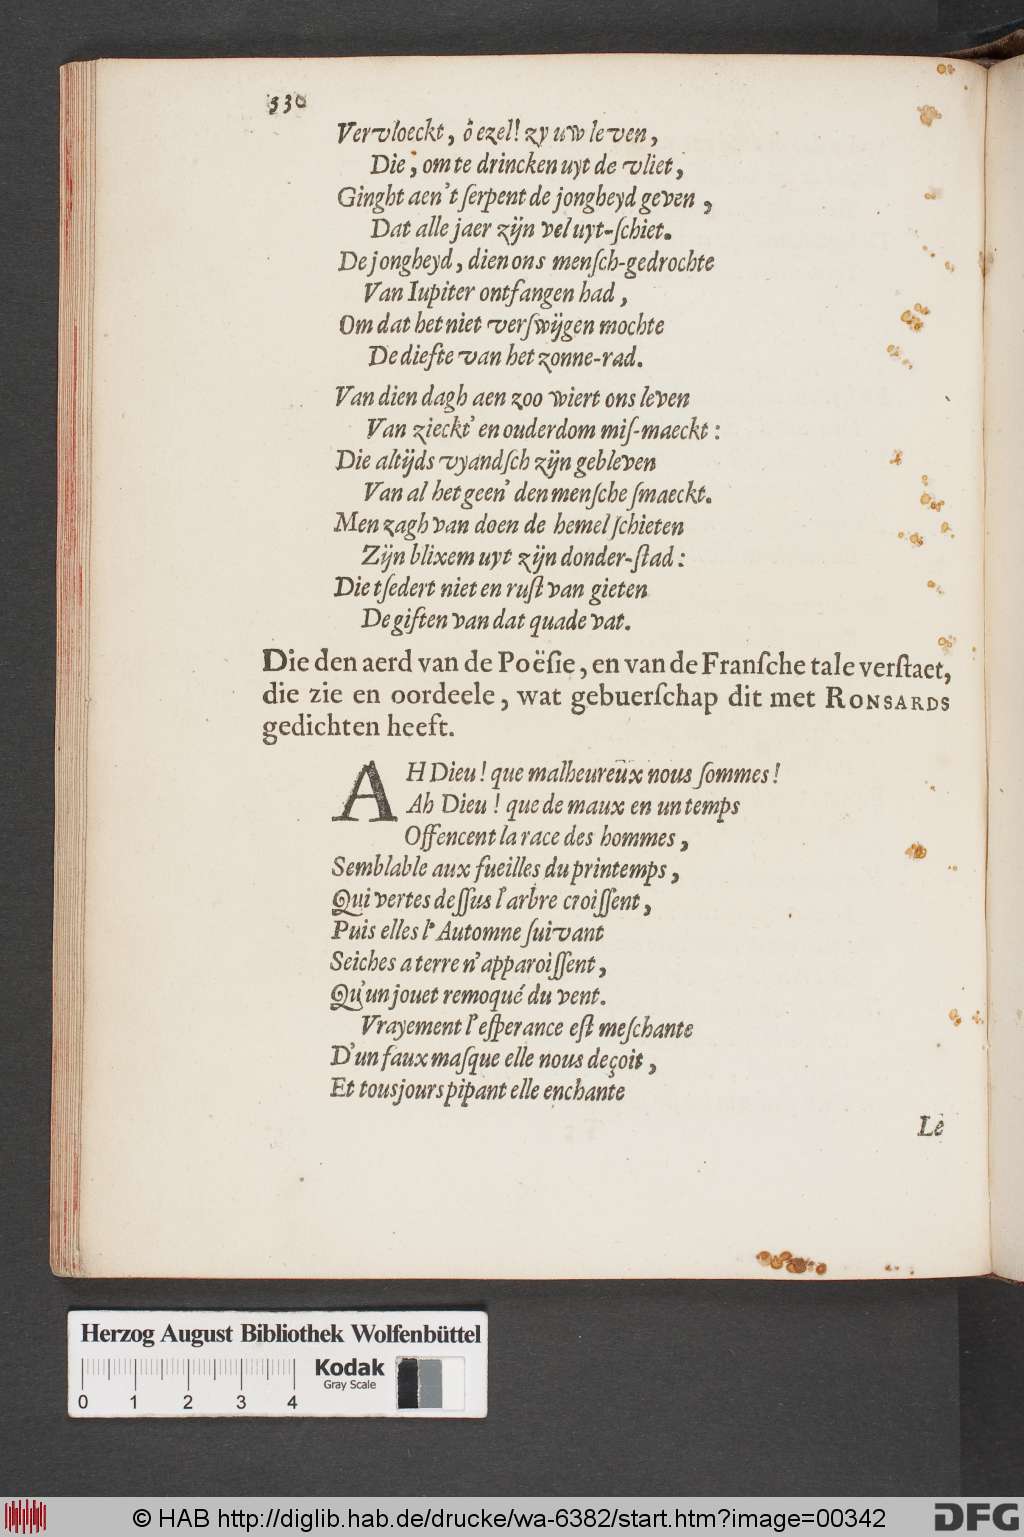 330
Vervloeckt, ô ezel! zy uw leven,
Die, om te drincken uyt de vliet,
Ginght aen't ſerpent de jongheyd geven,
Dat alle jaer zijn vel uyt-ſchiet.
De jongheyd, dien ons menſch-gedrochte
Van Iupiter ontfangen had,
Om dat het niet verſwijgen mochte
De diefte van het zonne-rad.
Van dien dagh aen zoo wiert ons leven
Van zieckt' en ouderdom miſ-maeckt:
Die altijds vyandſch zijn gebleven
Van al het geen' den menſche ſmaeckt.
Men zagh van doen de hemel ſchieten
Zijn blixem uyt zijn donder-ſtad:
Die tſedert niet en ruſt van gieten
De giften van dat quade vat.
Die den aerd van de Poëſie, en van de Franſche tale verſtaet,
die zie en oordeele, wat gebuerſchap dit met RONSARDS
gedichten heeft.
AH Dieu! que malheureux nous ſommes!
Ah Dieu! que de maux en un temps
Offencent la race des hommes,
Semblable aux fueilles du printemps,
Qui vertes deſſus l'arbre croiſſent,
Puis elles l'Automne ſuivant
Seiches a terre n'apparoiſſent,
Qu'un jouet remoqué du vent.
Vrayement l'eſperance eſt meſchante
D'un faux maſque elle nous deçoit,
Et tousjours pipant elle enchante
Le
Herzog August Bibliothek Wolfenbüttel
Kodak
Gray Scale
0 1 2 3 4
© HAB http://diglib.hab.de/drucke/wa-6382/start.htm?image=00342
DFG